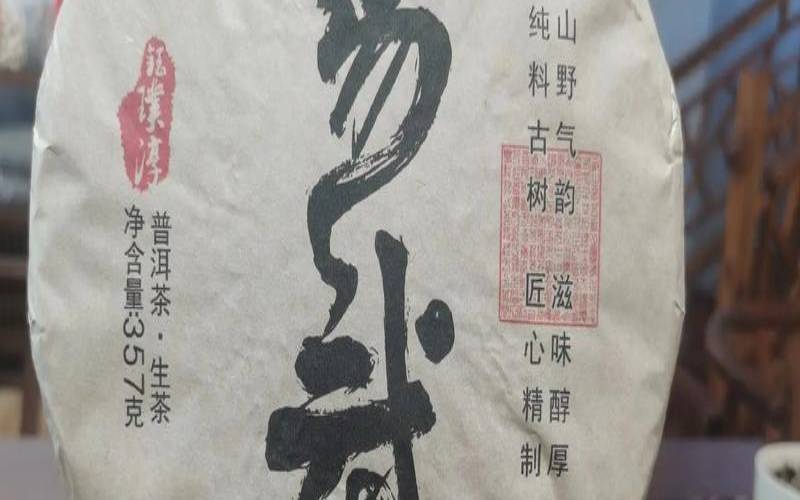 山野气韵 滋味醇厚
纯料古树 匠心精制
易武
钰璞淳
普洱茶·生茶
净含量:357克